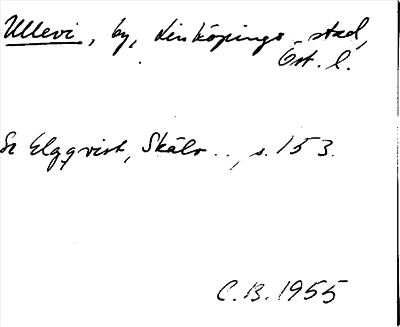 Ullevi, by, Linköpings stad,
Öst. l.
Se Elgqvist, Skälv.., s. 153.
C.B. 1955